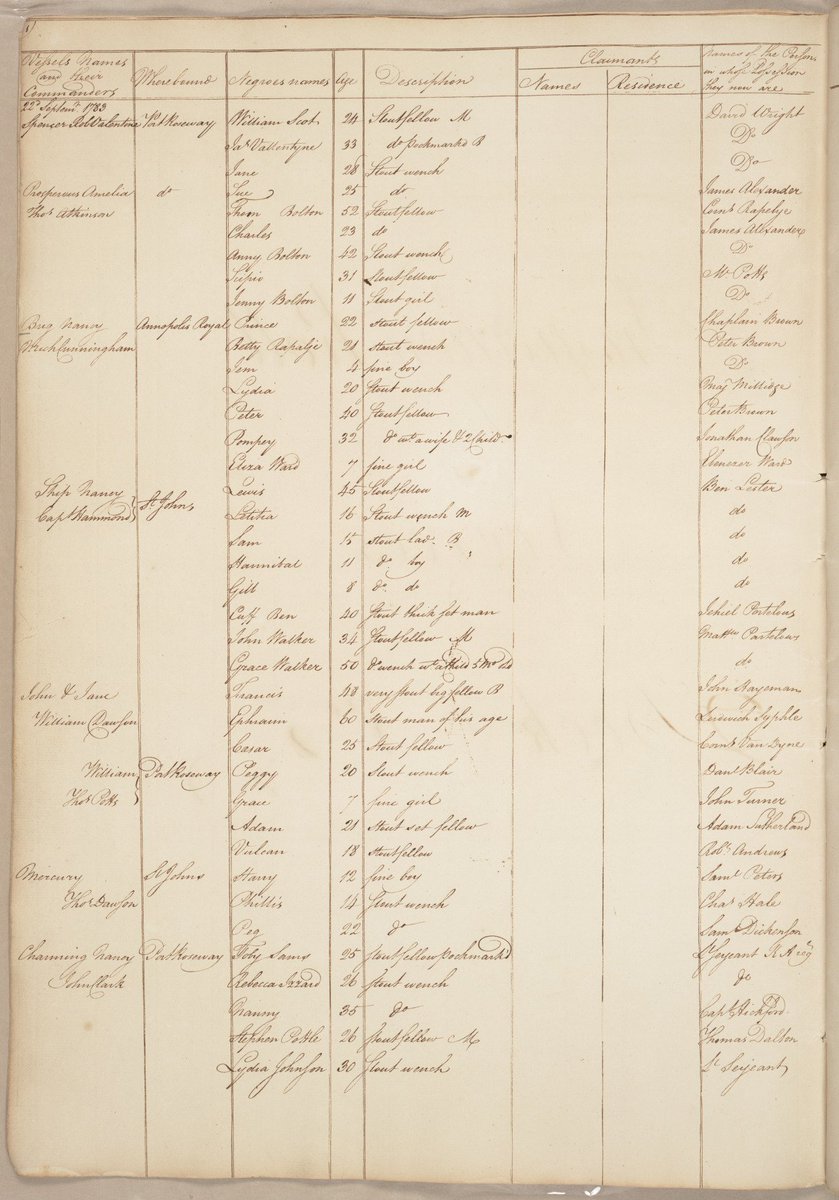 Vessels Names and their Commanders Where bound Negroes names Age Description Claimants Names Residence Names of the Persons in whose Possession they now are
22d Septemr. 1783
Spencer Robt Valentine Port Roseway William Scot 24 Stout fellow M David Wright
Jas. Vallentyne 33 do pockmarkd B Do
Jane 28 Stout wench Do
Prosperous Amelia do Sue 25 do James Alexander
Thos. Atkinson Thom Bolton 52 Stout fellow Corns. Rapelje
Charles 23 do James Alexander
Anny Bolton 42 Stout wench Do
Scipio 31 Stout fellow Mr. Potts
Jenny Bolton 11 Stout girl Do
Brig Nancy Annopolis Royal Prince 22 stout fellow Chaplain Brown
Cunningham Betty Rapalje 21 stout wench Peter Brown
Jem 4 fine boy Do
Lydia 20 Stout wench Maj Millidge
Peter 40 Stout fellow Peter Brown
Pompey 32 do wt. a wife & 2 Child. Jonathan Clawson
Eliza Ward 7 fine girl Ebenezer Ward
Ship Nancy St. Johns Lewis 45 Stout fellow Ben Lester
Capt. Hammond Letitia 16 Stout wench M do
Sam 15 stout lad. B do
Hannibal 11 do boy do
Gilb 8 do. do do
Cuff Ben 40 Stout thick set man Jehiel Partelous
John Walker 34 Stout fellow M Matthw Partelous
Grace Walker 50 do wench wt. a Child 5 Mo. old do
John & Jane Francis 48 very stout big fellow B John Hayeman
William Dawson Ephraim 60 Stout man of his age Lerdwick Syphle
Cæsar 25 Stout fellow Corns. Van Dyne
William Port Roseway Peggy 20 Stout wench Danl. Blair
Thos. Potts Grace 7 fine girl John Turner
Adam 21 Stout set fellow Adam Sutherland
Vulcan 18 stout fellow Robt. Andrews
Mercury St Johns Harry 12 fine boy Saml. Peters
Thos. Dawson Phillis 14 Stout wench Chas. Hale
Peg 22 do Sam Dickenson
Charming Nancy Port Roseway Toby Sams 25 stout fellow pockmarkd Lt. Serjeant
John Clark Rebecca Izzard 26 Stout wench do
Nanny 35 do Capt. Hickford
Stephen Pottle 26 stout fellow M Thomas Dalton
Lydia Johnson 30 Stout wench Lt Serjeant